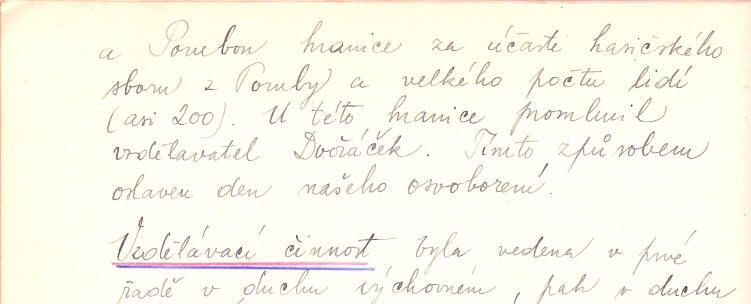 a Porubou hranice za účasti hasičského
sboru z Poruby a velkého počtu lidí
(asi 200). U této hranice promluvil
vzdělavatel Dvořáček. Tímto způsobem
oslaven den našeho osvobození.
Vzdělávací činnost byla vedena v prvé
řadě v duchu výchovném, pak v duchu